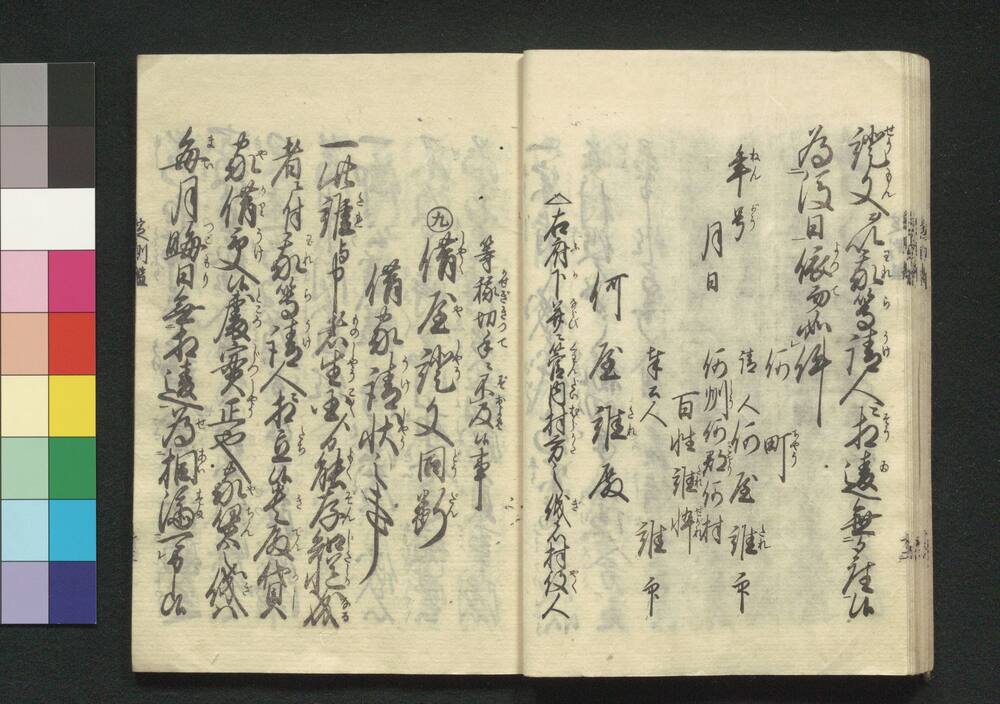 證文見人我等請人ニ相違無御座候
為後日依而如件
何町
年号 請人何屋誰印
月日 何州何郡何村
百姓誰忰
奉公人 誰印
何屋誰殿
右府下并ニ管内村方之儀者村役人
等稼切手ニ不及候事
九 借屋證文同断
借家請状之事
一此誰与申者生国人ゟ能存知慥成
者ニ付我等請人ニ相立候貴殿貸
家借受候處實正也家賃之儀者
毎月晦日無相違為相済可申候